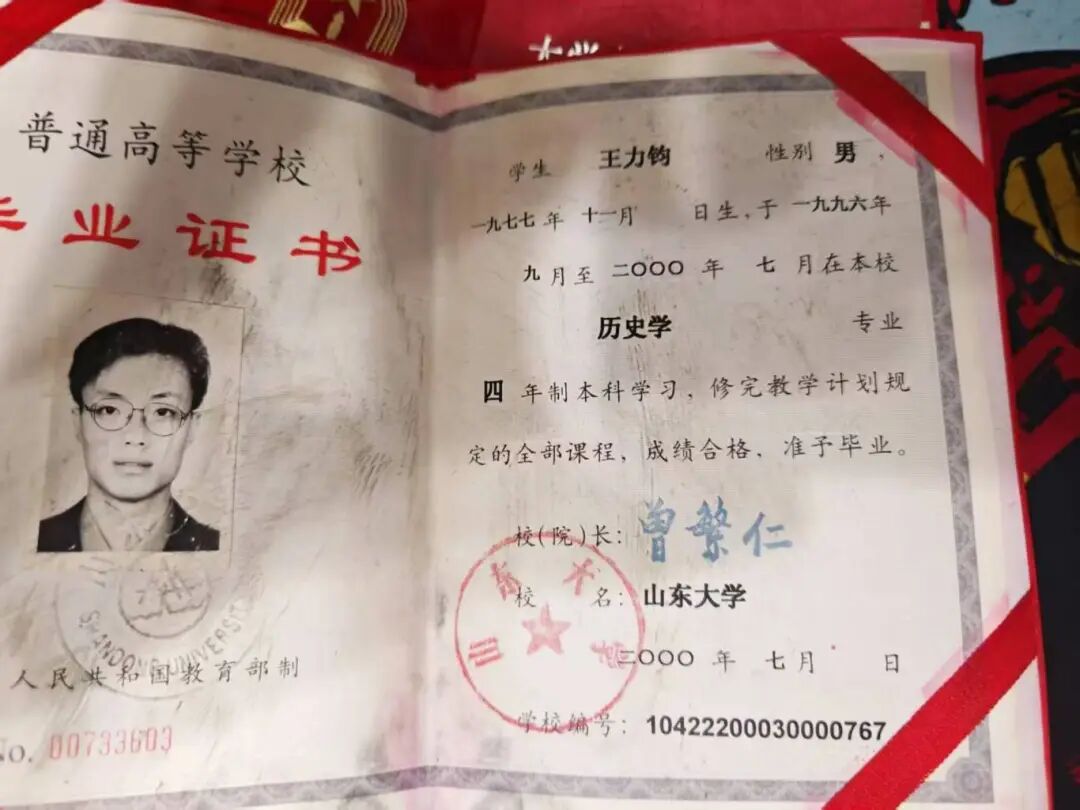 普通高等学校
毕业证书
SHANDONG UNIVERSITY
人民共和国教育部制
No. 00733603
学生 王力钧 性别 男,
一九七七年 十一月 日生,于 一九九六年
九月至 二〇〇〇 年 七 月在本校
历史学 专业
四 年制本科学习,修完教学计划规
定的全部课程,成绩合格,准予毕业。
校(院)长: 曾繁仁
校 名: 山东大学
山东大学
二〇〇〇 年 七月 日
学校编号: 10422200030000767